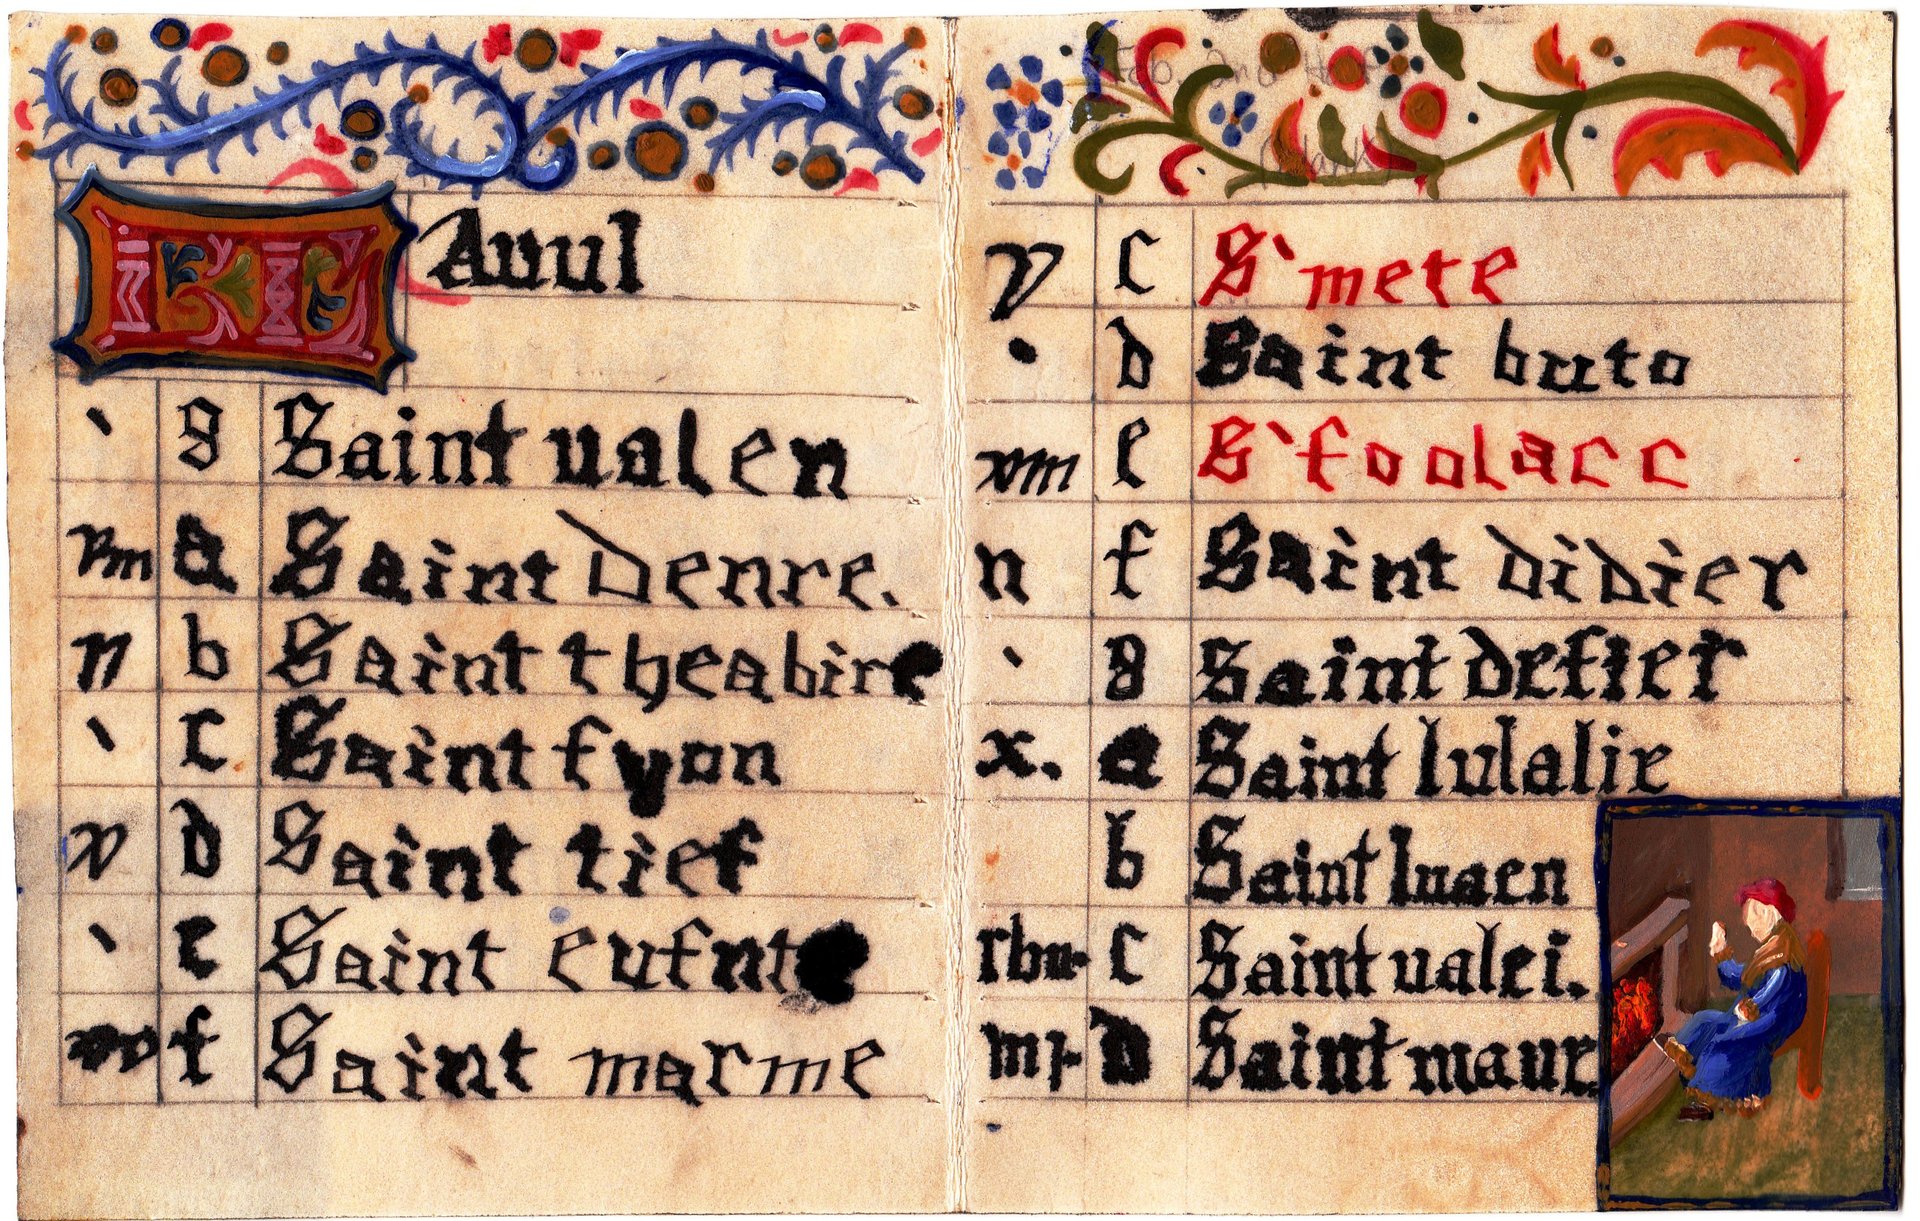 KL Auul
g Saint ualen
a Saint denre.
n b Saint theabire
c Saint fyon
v d Saint tief
e Saint eufnte
f Saint marme
Feb. 2nd Half
(blank)
y c S`mete
d Saint buto
e S`foolacc
n f Saint didier
g Saint deffer
x. a Saint lulalie
b Saint luaen
c Saint ualei.
d Saint maur